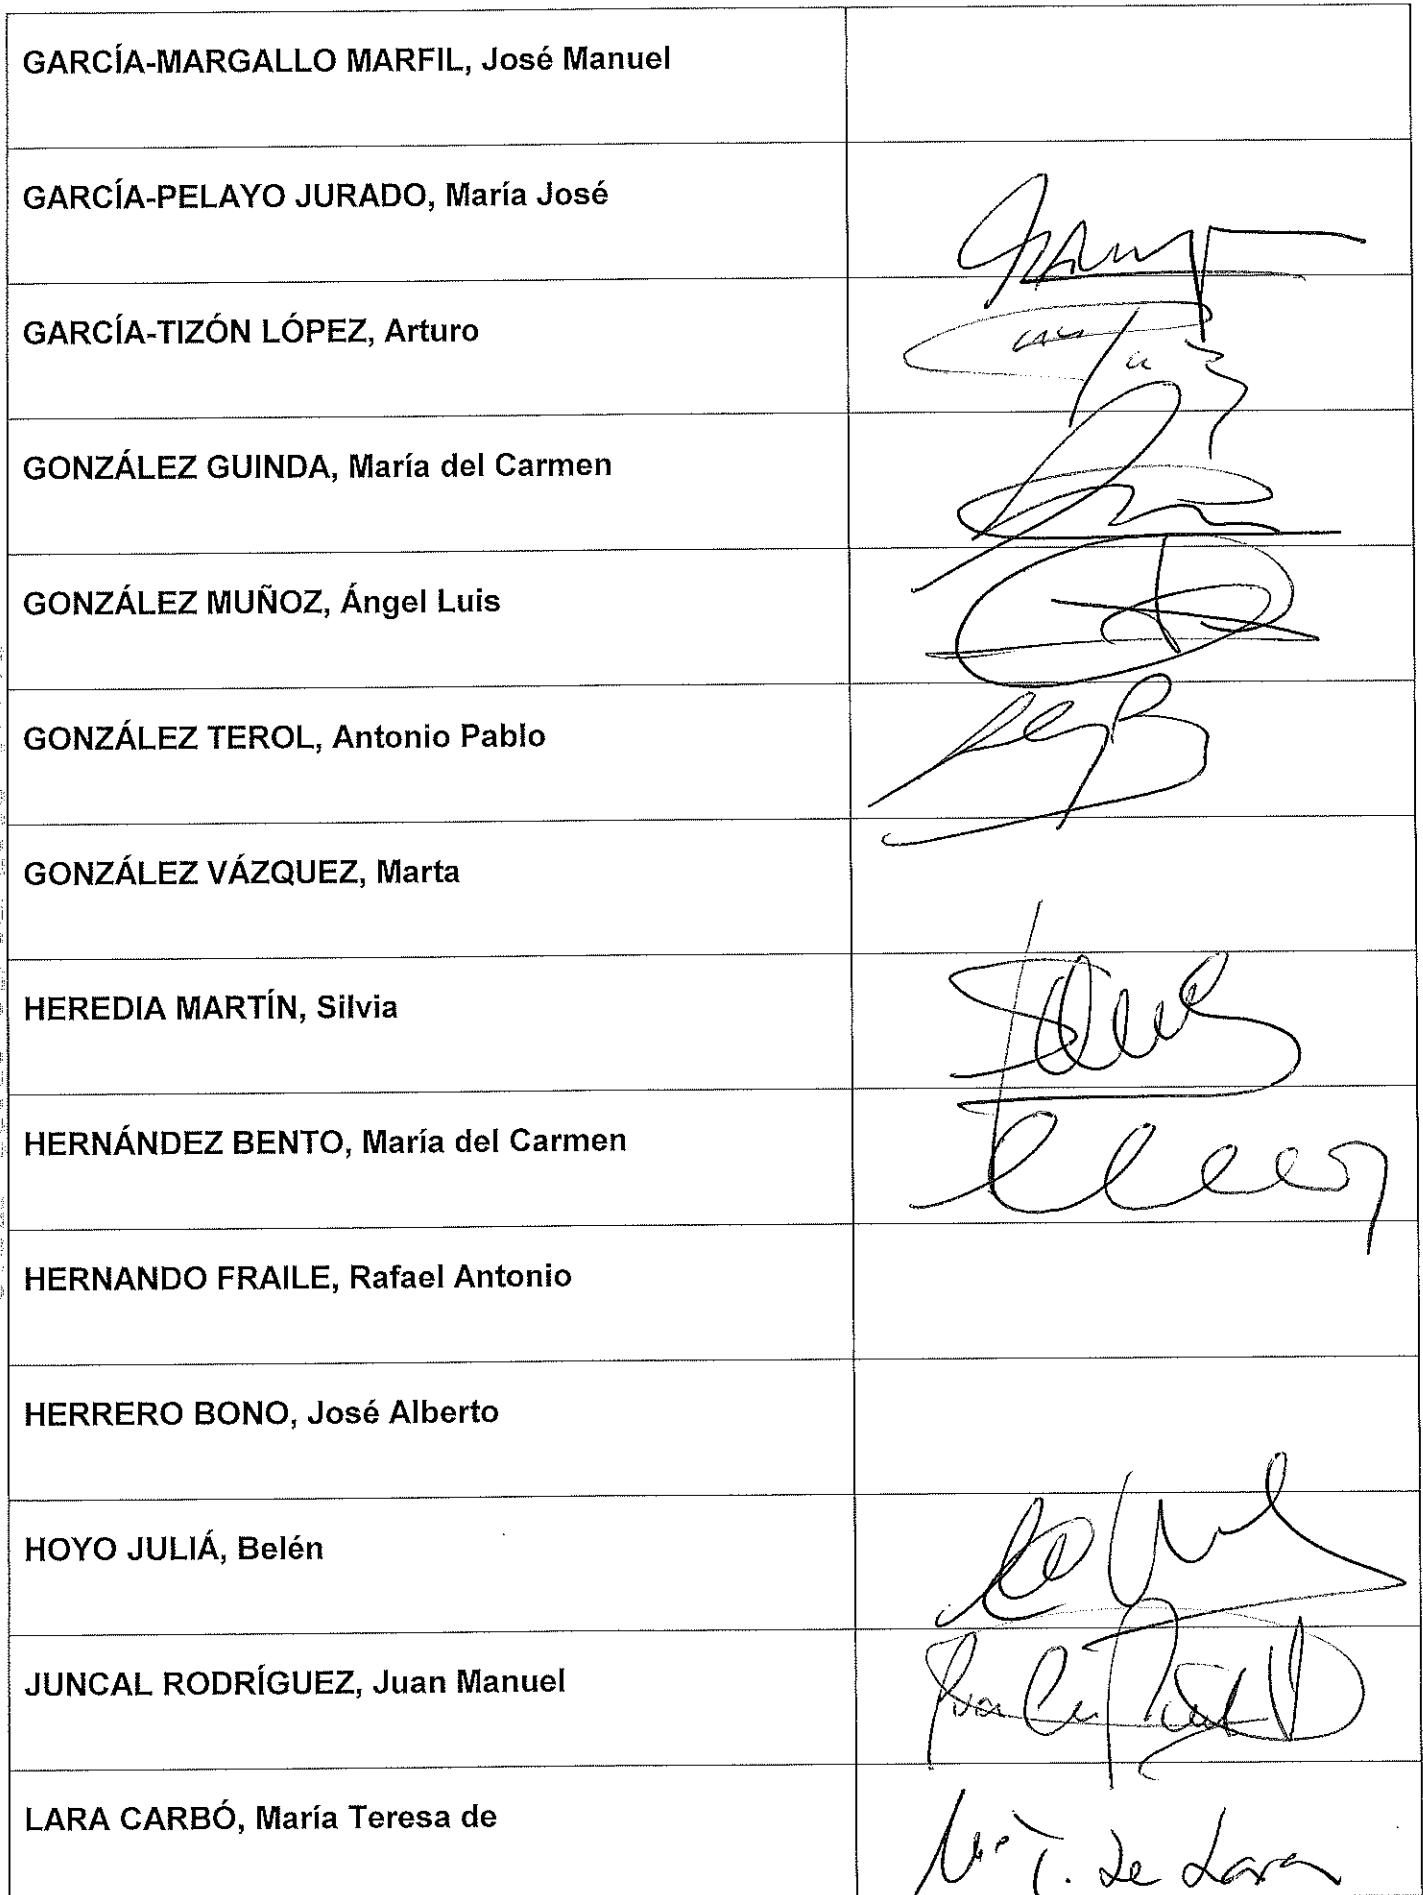 GARCÍA-MARGALLO MARFIL, José Manuel
GARCÍA-PELAYO JURADO, María José
GARCÍA-TIZÓN LÓPEZ, Arturo
GONZÁLEZ GUINDA, María del Carmen
GONZÁLEZ MUÑOZ, Ángel Luis
GONZÁLEZ TEROL, Antonio Pablo
GONZÁLEZ VÁZQUEZ, Marta
HEREDIA MARTÍN, Silvia
HERNÁNDEZ BENTO, María del Carmen
HERNANDO FRAILE, Rafael Antonio
HERRERO BONO, José Alberto
HOYO JULIÁ, Belén
JUNCAL RODRÍGUEZ, Juan Manuel
LARA CARBÓ, María Teresa de
Mª T. de Lara